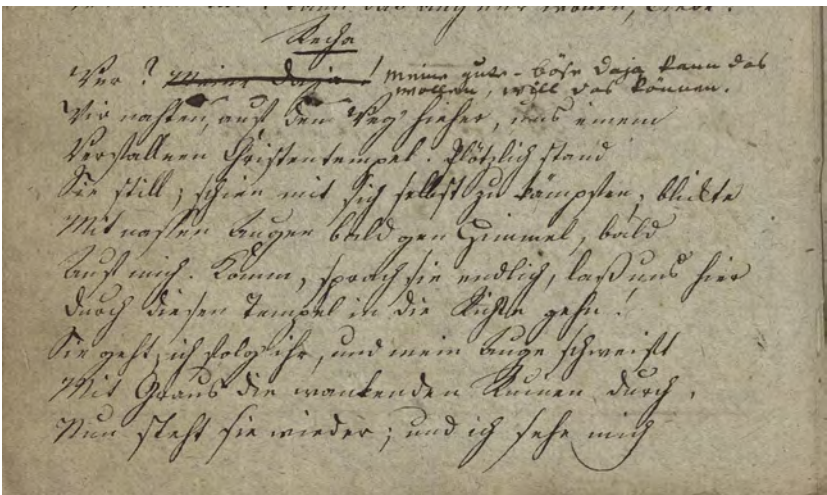 kann das
Recha
Wer? Meine Daja! meine gute-böse Daja kann das
wollen, will das können.
Wir nahten, auf dem Weg' hieher, uns einem
Verfallnen Christentempel. Plötzlich stand
Sie still; schien mit sich selbst zu kämpfen; blickte
Mit nassen Augen bald gen Himmel, bald
Auf mich. Komm, sprach sie endlich, laß uns hier
Durch diesen Tempel in die Richte gehn!
Sie geht; ich folg' ihr, und mein Auge schweift
Mit Graus die wankenden Ruinen durch.
Nun steht sie wieder; und ich sehe mich